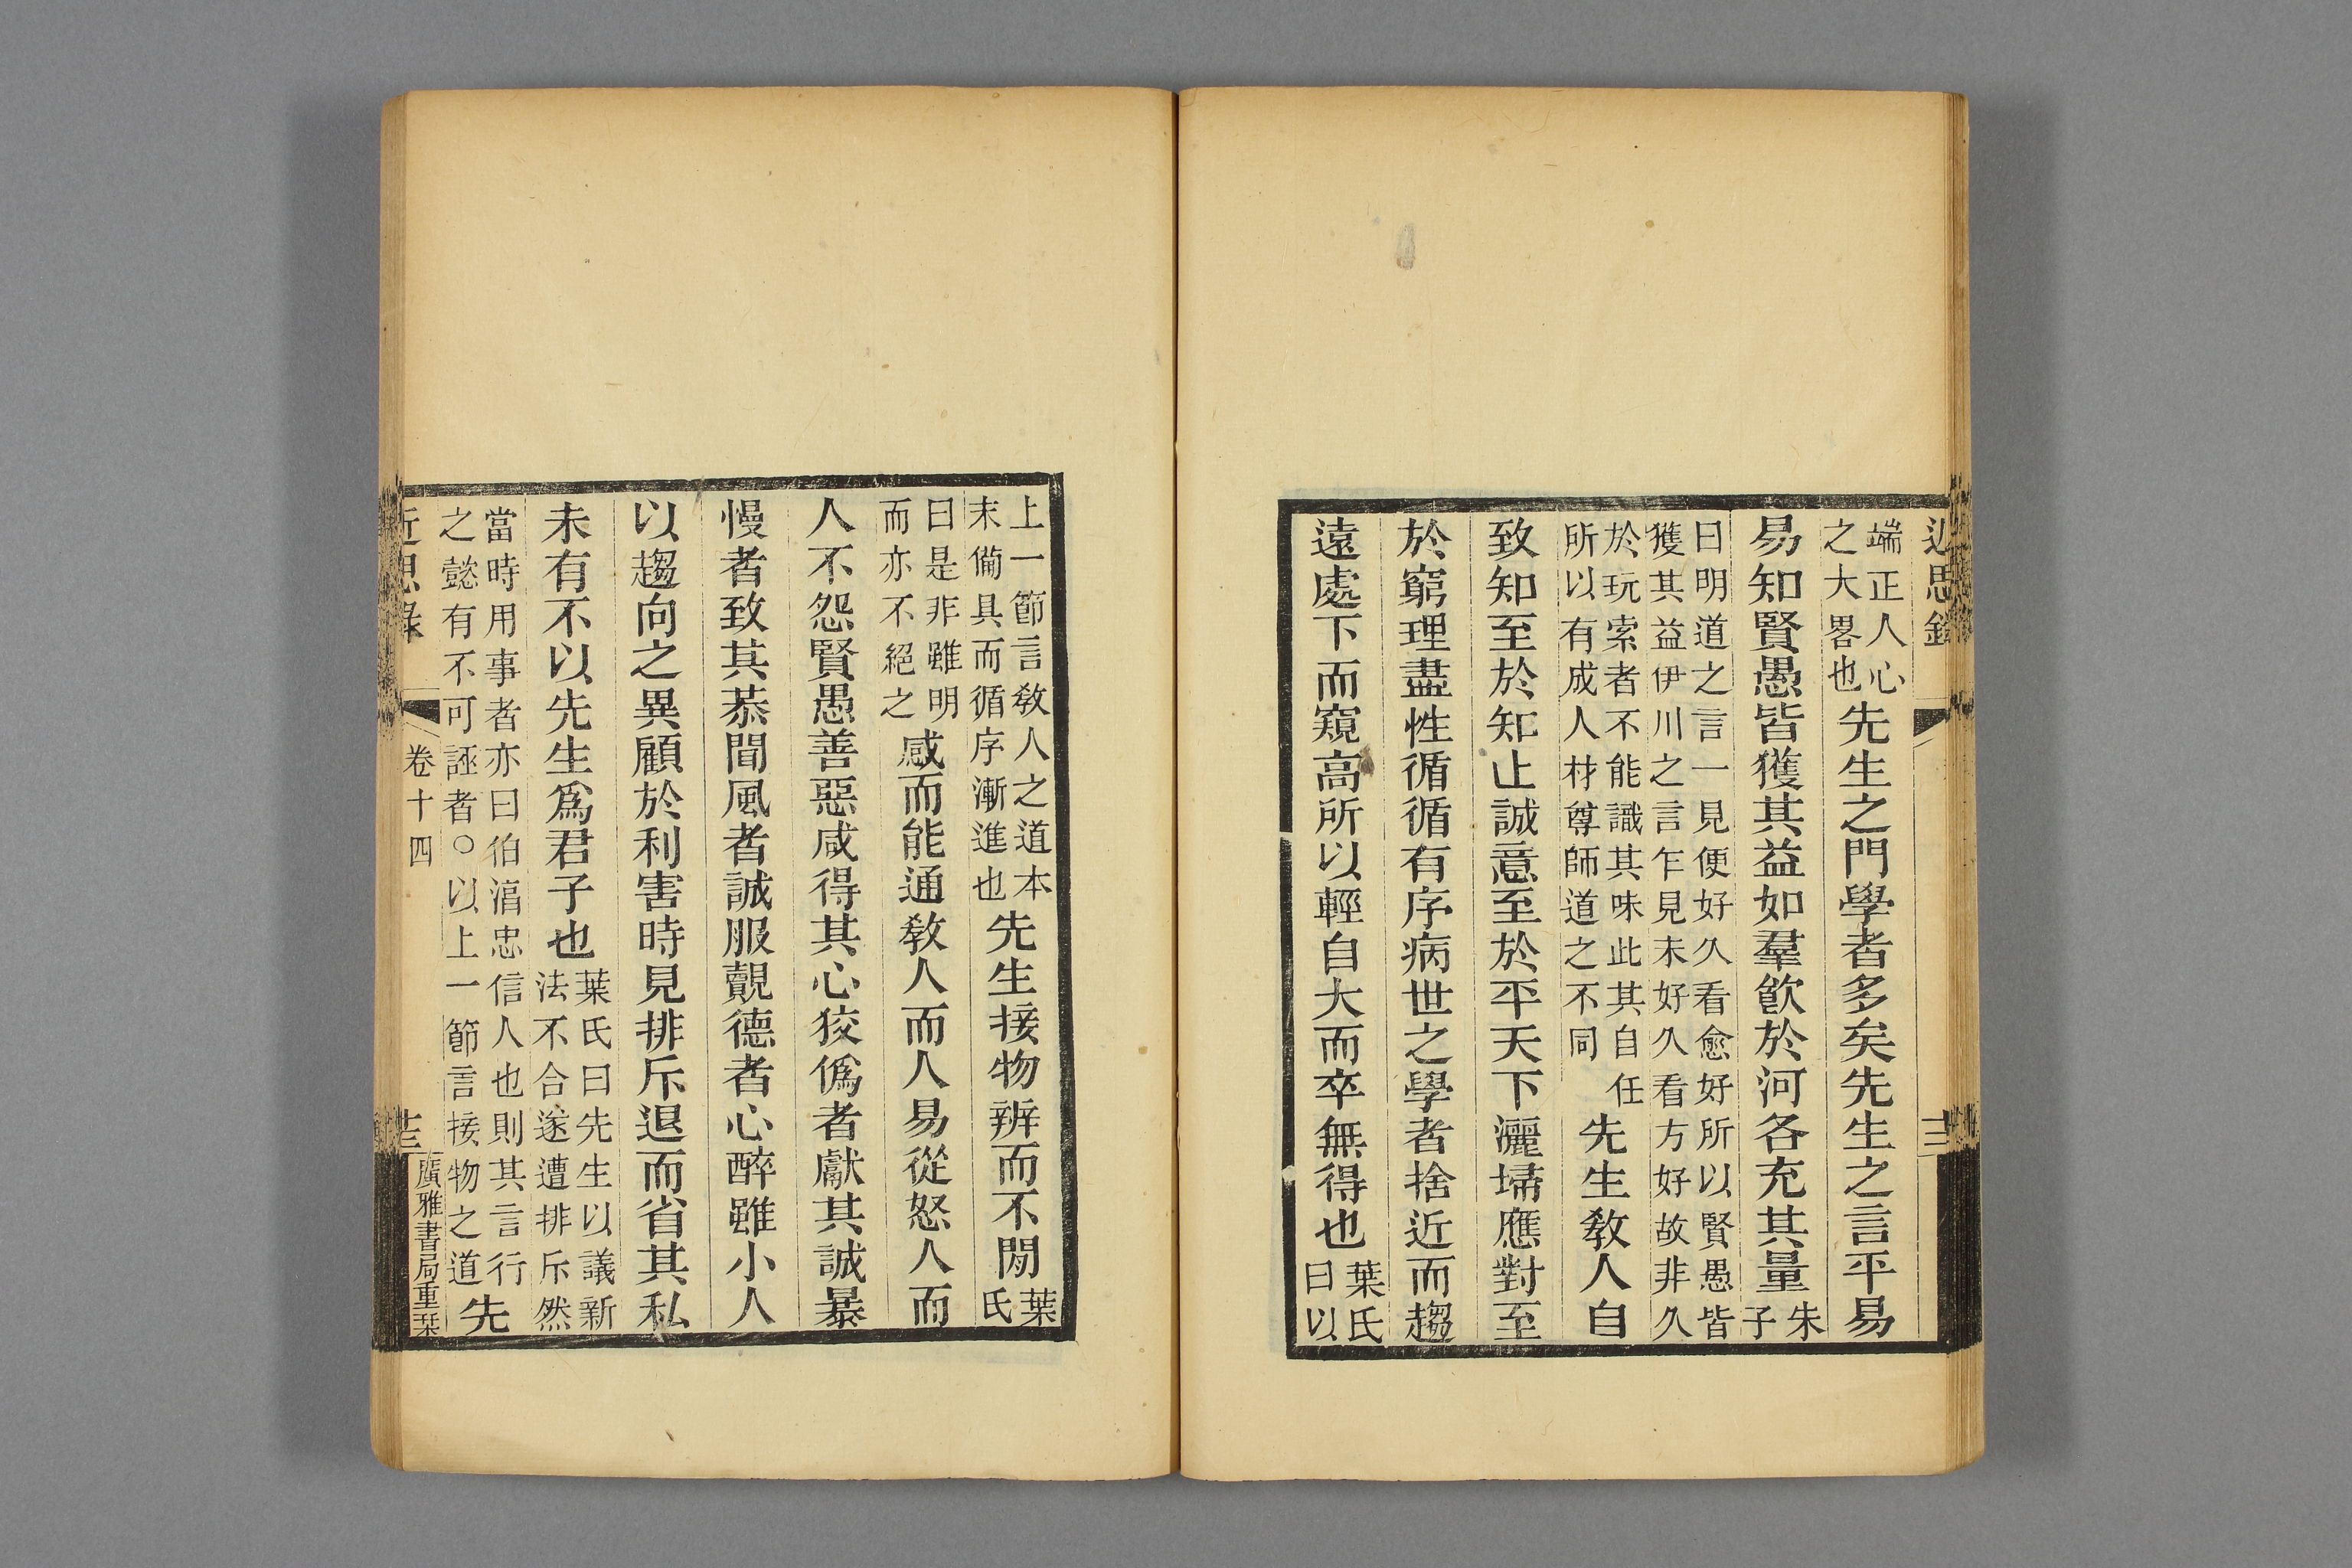 近思錄
端正人心
之大畧也
先生之門學者多矣先生之言平易
易知賢愚皆獲其益如羣飮於河各充其量
朱
子
曰明道之言一見便好久看愈好所以賢愚皆
獲其益伊川之言乍見未好久看方好故非久
於玩索者不能識其味此其自任
所以有成人材尊師道之不同
先生敎人自
致知至於知止誠意至於平天下灑埽應對至
於窮理盡性循循有序病世之學者捨近而趨
遠處下而窺高所以輕自大而卒無得也
葉氏
曰以
上一節言敎人之道本
末備具而循序漸進也
先生接物辨而不閒
葉
氏
曰是非雖明
而亦不絕之
感而能通敎人而人易從怒人而
人不怨賢愚善惡咸得其心狡僞者獻其誠暴
慢者致其恭聞風者誠服覿德者心醉雖小人
以趨向之異顧於利害時見排斥退而省其私
未有不以先生爲君子也
葉氏曰先生以議新
法不合遂遭排斥然
當時用事者亦曰伯淳忠信人也則其言行
之懿有不可誣者○以上一節言接物之道
先
近思錄
卷十四
廣雅書局重栞